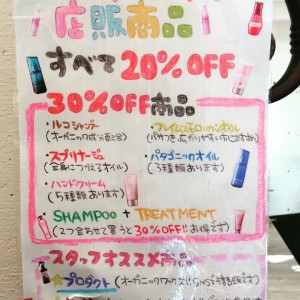 店販商品
すべて20%OFF
30%OFF商品
・ルコシャンプー
(オーガニック成分配合)
・スプリナージュ
(全身につかえるオイル)
・ハンドクリーム
(5種類あります)
・パタゴニックオイル
(3種類あります)
SHAMPOO + TREATMENT
(2つ合わせて買うと30%OFF!!お得です)
スタッフオススメ商品
プロダクト(オーガニックワックス!!SNSで話題です)